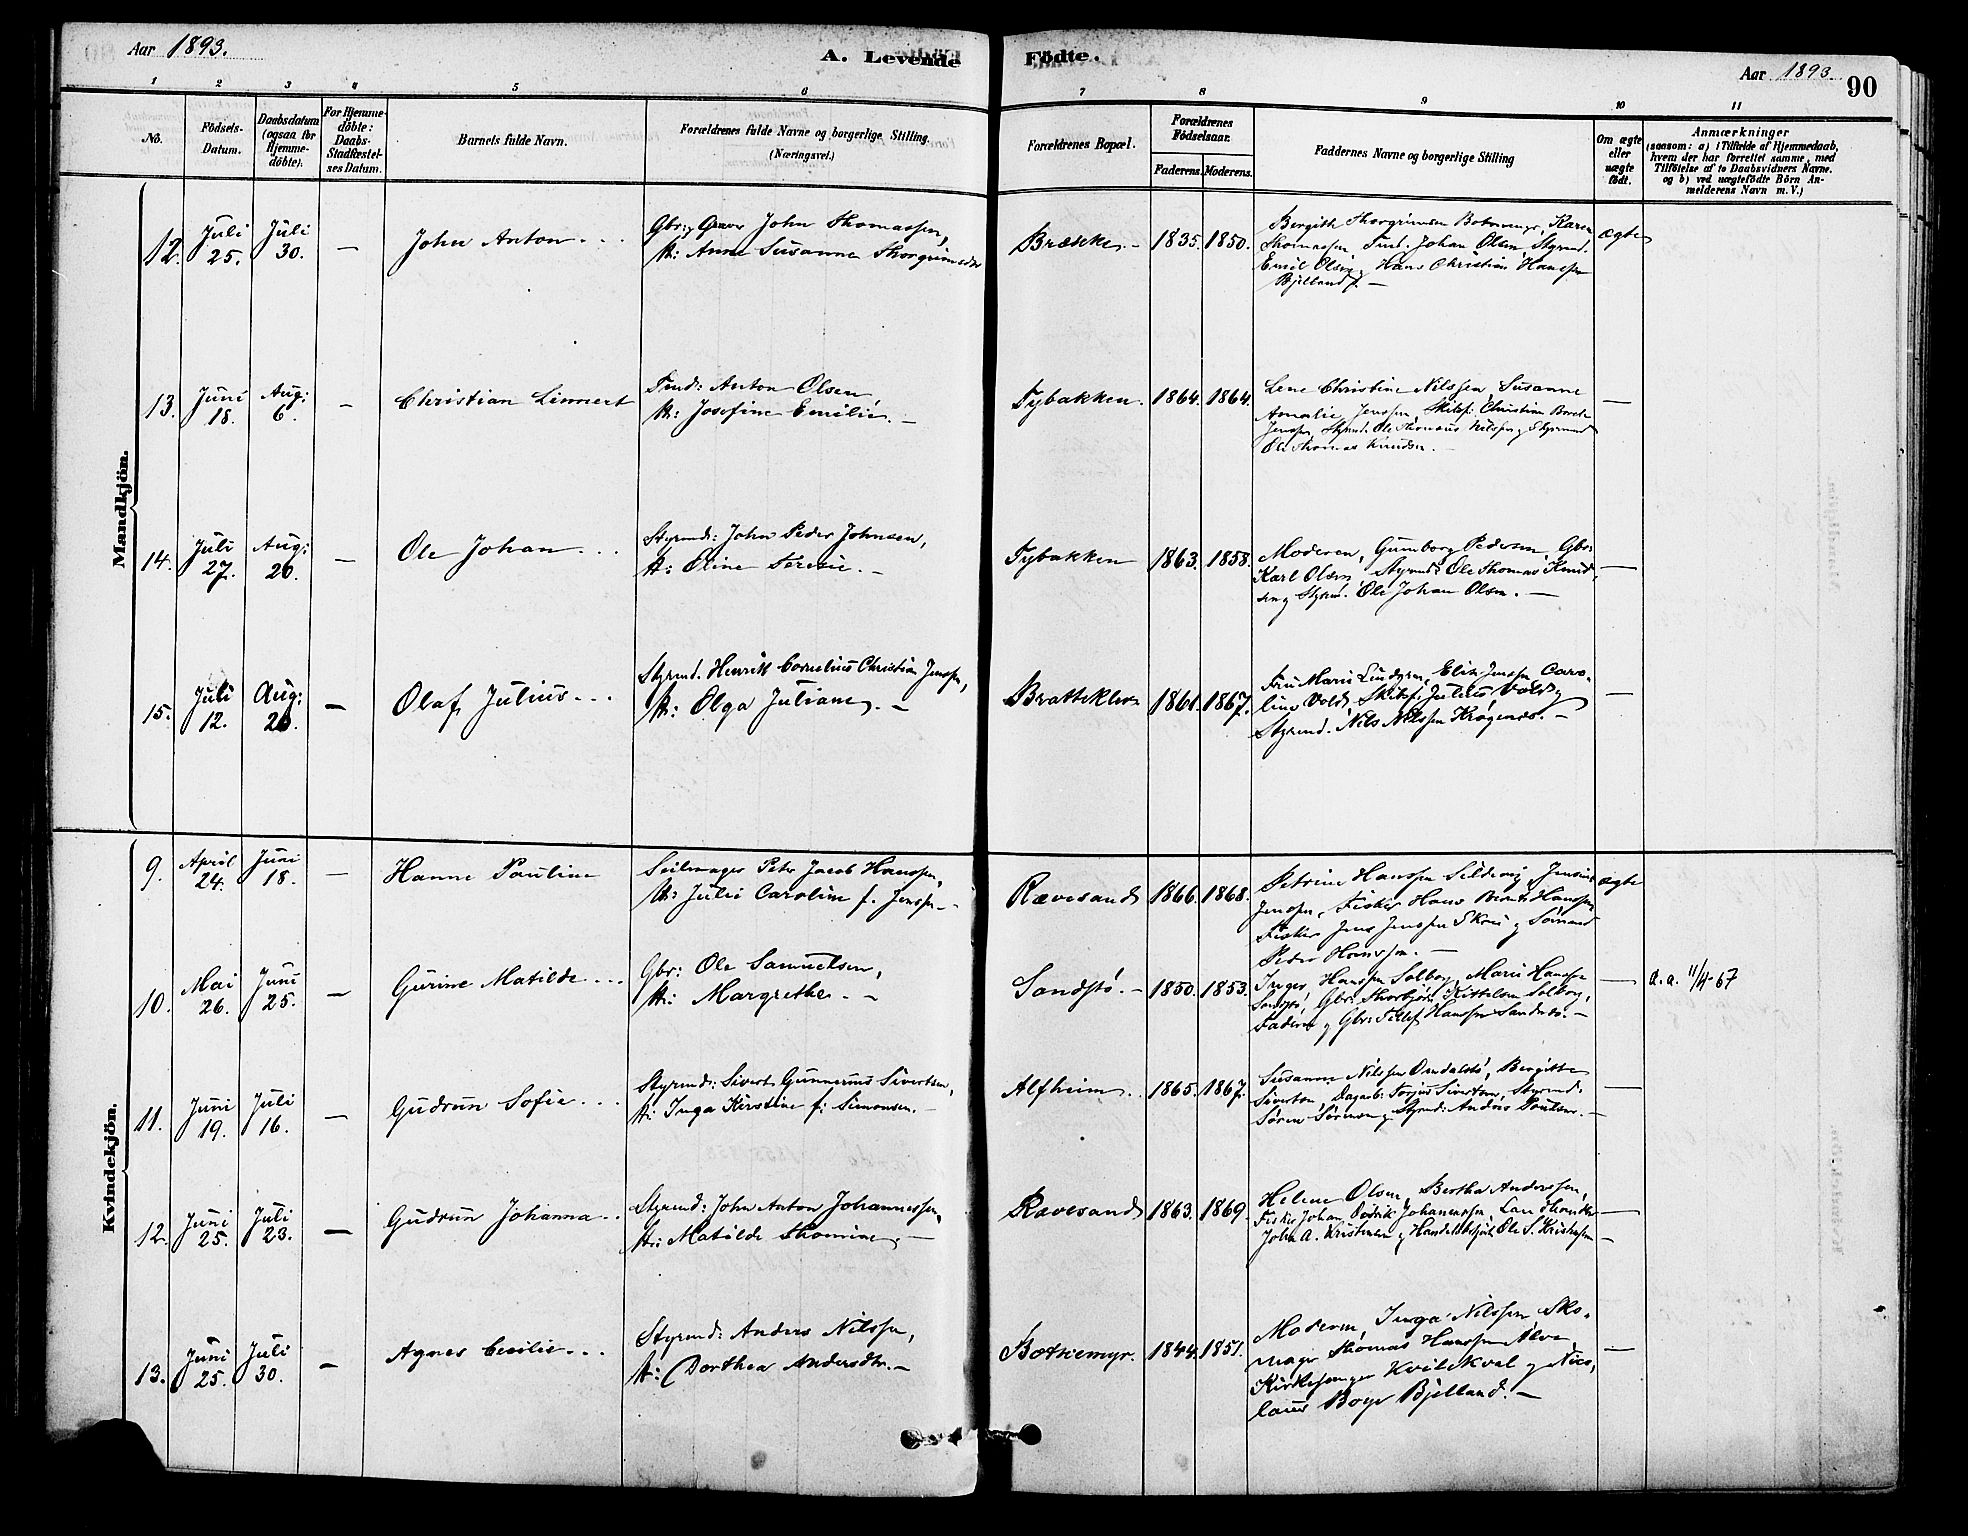 Aar 1893.
A. Levende Födte.
Aar 1893.
90
1 2 3 4 5 6 7 8 9 10 11
No.
Födsels-
Datum.
Daabsdatum
(ogsaa for
Hjemme-
döbte).
For Hjemme-
döbte:
Daabs-
Stadfæstel-
ses Datum.
Barnets fulde Navn.
Forældrenes fulde Navne og borgerlige Stilling.
(Næringsvei.)
Forældrenes Bopæl.
Forældrenes
Födselsaar.
Faderens. Moderens.
Faddernes Navne og borgerlige Stilling
Om ægte
eller
uægte
födt.
Anmærkninger
(saasom: a) i Tilfælde af Hjemmedaab,
hvem der har forrettet samme, med
Tilföielse af to Daabsvidners Navne.
og b) ved uægtefödte Börn An-
melderens Navn m. V.)
Mandkjön.
12. Juli 25. Juli 30. — John Anton
Gbr. John Thomassen,
H: Anne Susanne Thorgrimsdtr
1835. 1850.
Bergith Thorgrimsen Karen
Thomassen Tmd. Johan Olsen Styrmd.
Emil Olsen, Hans Christian Hanssen
Bjelland. —
ægte
13. Juni 18. Aug: 6. — Christian Linnert
Tmd: Anton Olsen,
H: Josefine Emilie. —
Tybakken. 1864. 1864.
Lene Christine Nilssen, Susanne
Amalie Jenssen, Skibsf: Christian
Jenssen, Styrmd. Ole Thomas Nilssen Styrmand
Ole Thomas Knudsen. —
—
14. Juli 27. Aug: 20. — Ole Johan
Styrmd: John Peder Johnsen,
H: Eline Teresie. —
Tybakken 1863. 1858.
Moderen, Gunborg Pedersen, Gbr:
Karl Olsen, Styrmd: Ole Thomas Knud-
sen, Styrm. Ole Johan Olsen. —
—
15. Juli 12. Aug: 20. — Olaf Julius
Styrmd. Henrik Cornelius Christian Jenssen,
H: Olga Juliane. —
Brattekleiv 1861. 1867.
Fru Marie Lindgren, Elise Jenssen Caro-
line Vold, Skibsf: Julius Vold,
Styrmd. Nils Nilssen Krøgenes. —
—
Kvindekjön.
9. April 24. Juni 18. — Hanne Pauline
Seilmager Peter Jacob Hanssen,
H: Julie Caroline f. Jenssen —
Rævesand 1866. 1868.
Petrine Hanssen Sildevig, Jensine
Jenssen, Fisker Hans Hanssen
Fisker Jens Jenssen Skrei, Sømand
Peder Hanssen. —
ægte
10. Mai 26. Juni 25. — Gurine Matilde
Gbr: Ole Samuelsen,
H: Margrethe. —
Sandstø. — 1850. 1853.
Inger Hanssen Solborg, Marie Hanssen
Sandstø, Gbr: Thorbjørn Kittelsen Solborg,
Faderen, Gbr: Hanssen Sandnes. —
—
d.a. 11/4-67
11. Juni 19. Juli 16. — Gudrun Sofie
Styrmd: Sivert Gunnerius Sivertsen,
H: Inga Kirstine f: Simonsen. —
Alfheim 1865. 1867.
Susanne Nilssen Omdalstø, Bergitte
Sivertsen, Dagarb: Torjus Sivertsen, Styrmd:
Søren Sørensen, Styrmd: Anders Poulsen. —
—
12. Juni 25. Juli 23. — Gudrun Johanna
Styrmd: John Anton Johannessen,
H: Matilde Thomine. —
Rævesand 1863. 1869.
Helene Olsen, Bertha Anderssen,
Fisker Johan Johannessen,
John A. Kristensen, Handelsbetjent Ole S. —
—
13. Juni 25. Juli 30. — Agnes Cecilie
Styrmd: Anders Nilssen,
H: Dorthea Andersdtr. —
1844. 1851.
Moderen, Inga Nilssen Sko-
mager Thomas Hanssen Alve
Kirkesanger Kvilekval, Nico-
laus Boye Bjelland. —
—